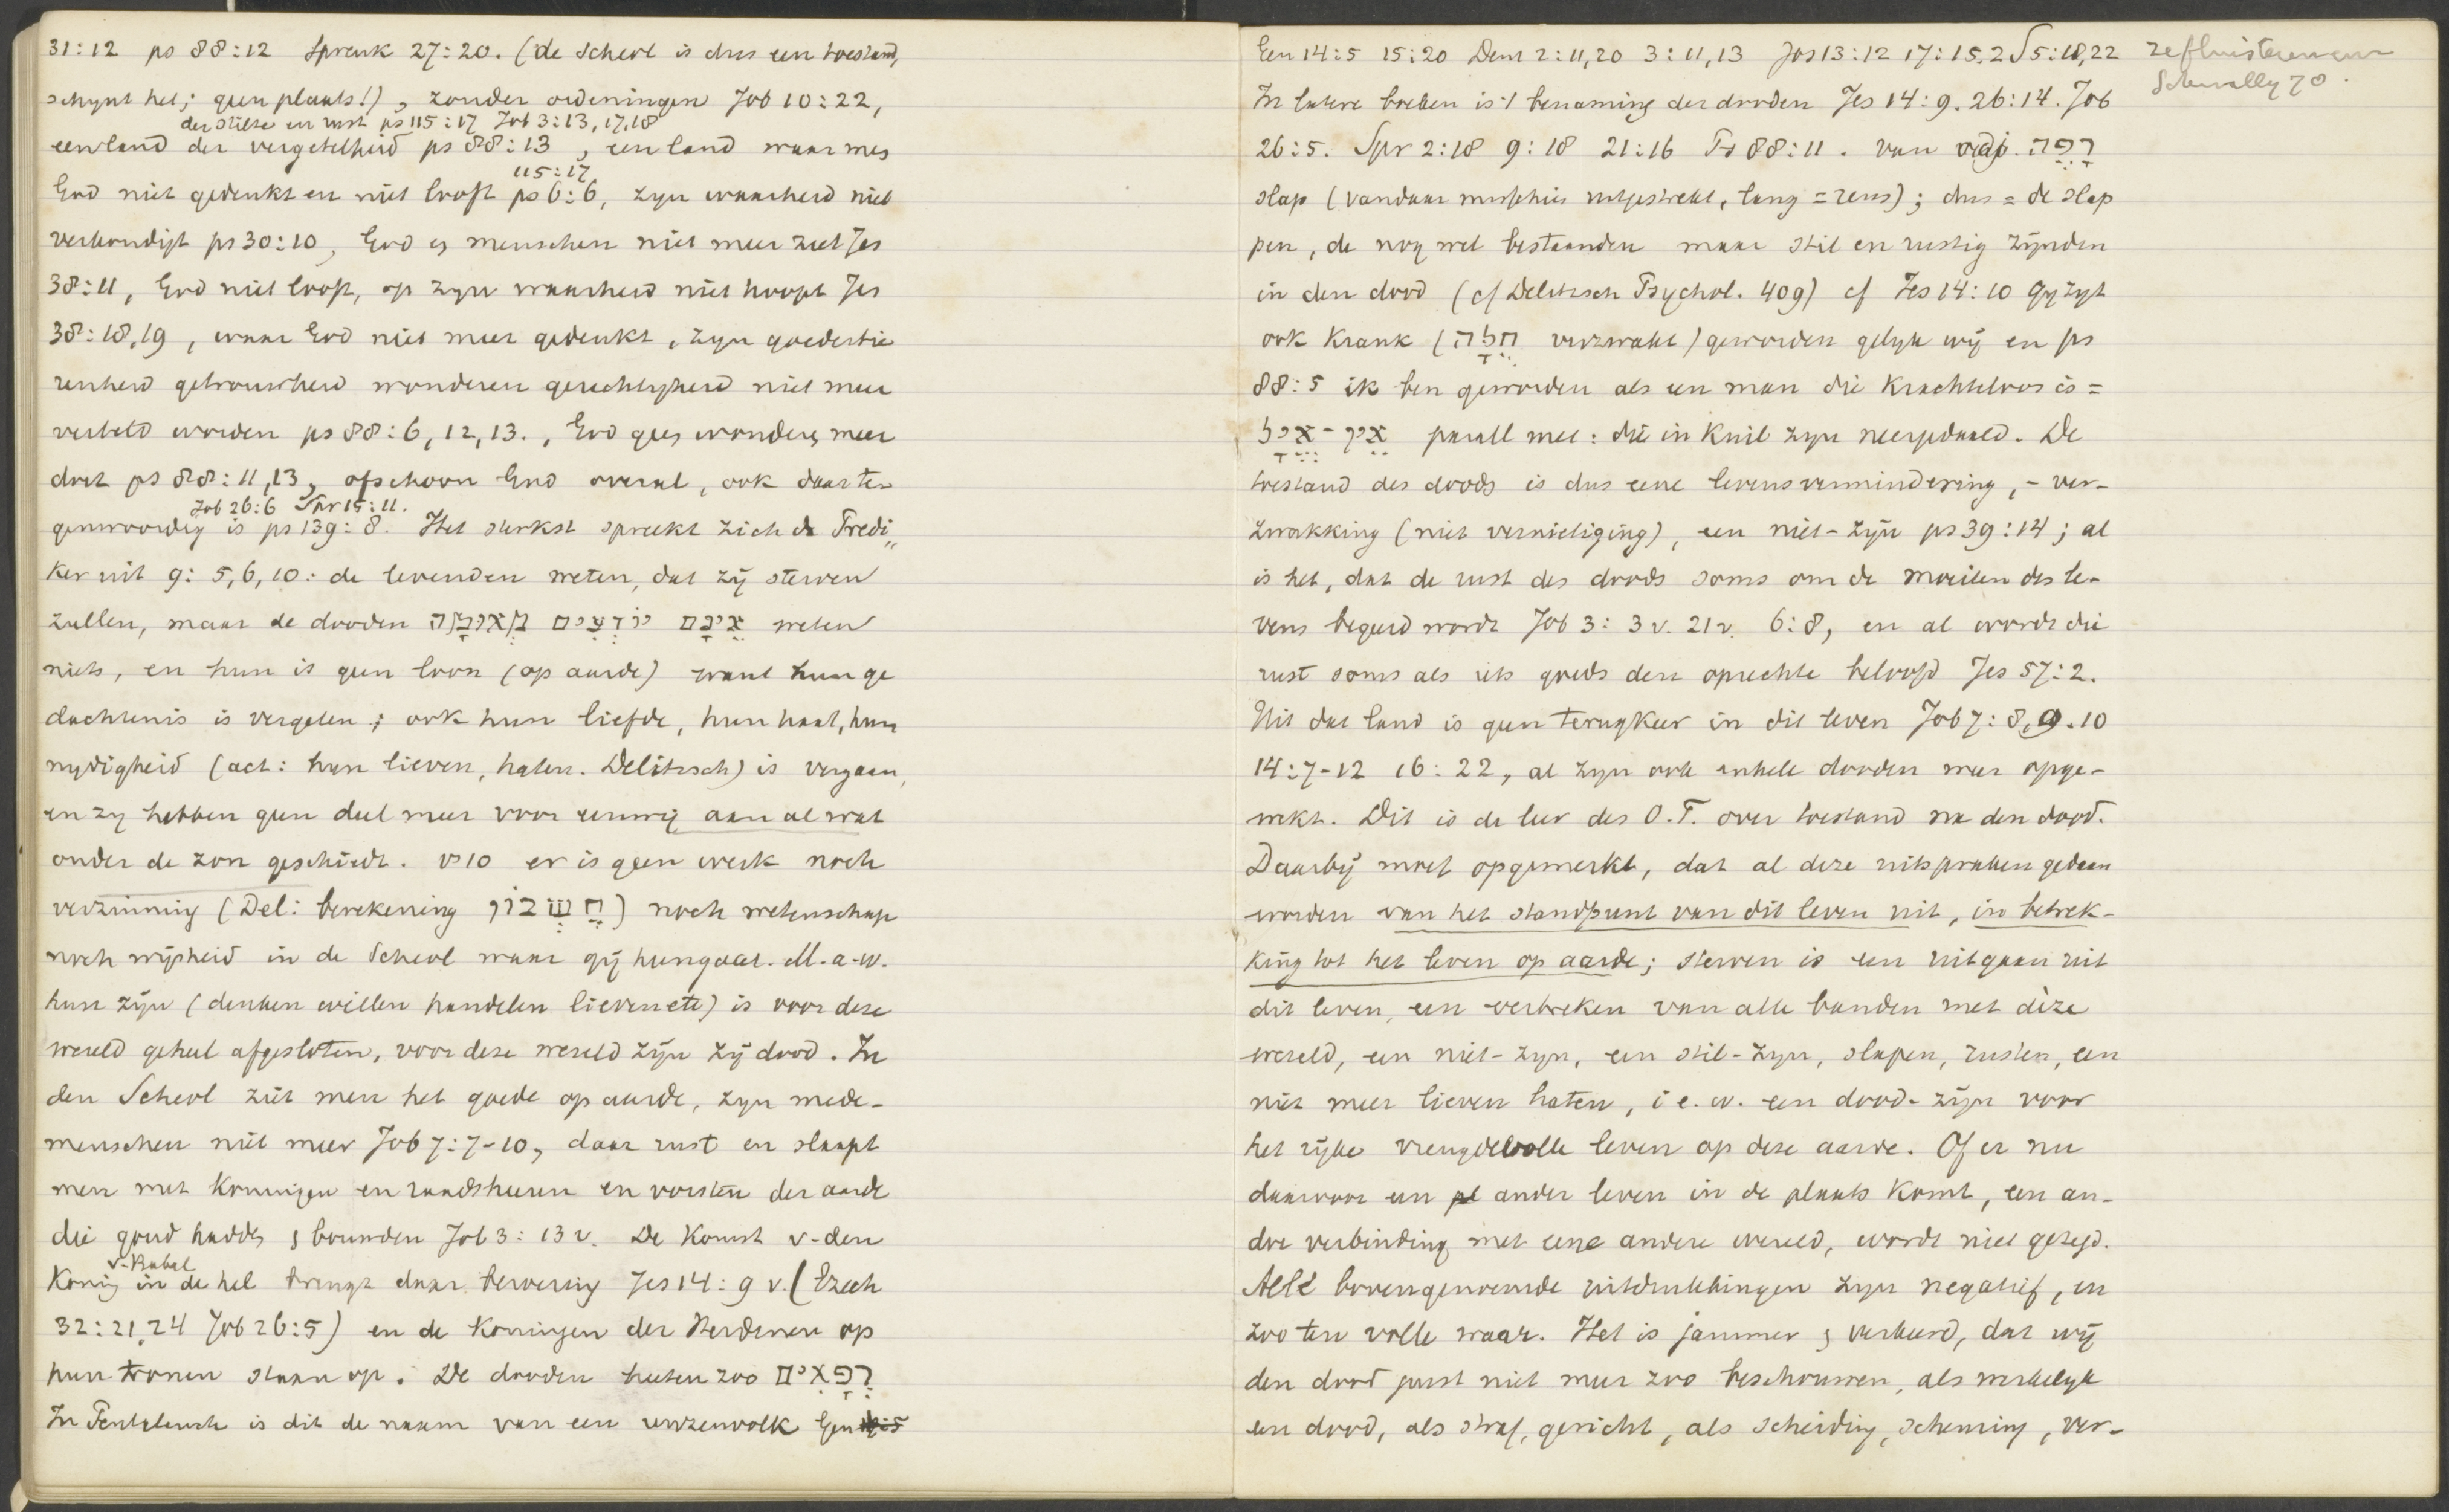 31:12 ps 88:12 Spreuk 27:20. (de Scheol is dus een toestand,
schynt het; geen plaats!), zonder ordeningen Job 10:22,
der stilte en rust ps 115:17 Job 3:13,17,18
een land der vergetelheid ps 88:13, een land waar men
115:17
God niet gedenkt en niet looft ps 6:6, zyn waarheid niet
verkondigt ps 30:10, God en menschen niet meer ziet Jes
38:11, God niet looft, op zyn waarheid niet hoopt Jes
38:18,19, waar God niet meer gedenkt, zyn goedertie
renheid getrouwheid wonderen gerechtigheid niet meer
verteld worden ps 88:6,12,13., God geen wonderen meer
doet ps 88:11,13, ofschoon God overal, ook daar ten
Job 26:6 Spr 15:11.
genwoordig is ps 139:8. Het sterkst spreekt zich de Predi„
ker uit 9:5,6,10: de levenden weten, dat zij sterven
zullen, maar de dooden אֵינָם יוֹדְעִים מְאוּמָה weten
niets, en hun is geen loon (op aarde) want hun ge
dachtenis is vergeten; ook hun liefde, hun haat, hun
nydigheid (act: hun lieven, haten. Delitzsch) is vergaan,
en zy hebben geen deel meer voor eeuwig aan al wat
onder de zon geschiedt. vs 10 er is geen werk noch
verzinning (Del: berekening חֶשְׁבּוֹן) noch wetenschap
noch wijsheid in de Scheol waar gij heengaat. M.a.w.
hun zijn (denken willen handelen lieven etc) is voor deze
wereld geheel afgesloten, voor deze wereld zijn zij dood. In
den Scheol ziet men het goede op aarde, zyn mede-
menschen niet meer Job 7:7-10, daar rust en slaapt
men met koningen en raadsheeren en vorsten der aarde
die goud hadden en bouwden Job 3:13v. De komst v. den
v. Babel
Koning in de hel brengt daar beroering Jes 14:9 v. (Ezech
32:21,24 Job 26:5) en de koningen der Heidenen op
hun tronen staan op. De dooden heeten zoo רְפָאִים
In Pentateuch is dit de naam van een reuzenvolk Gen
Gen 14:5 15:20 Deut 2:11,20 3:11,13 Jos 13:12 17:15. 2 S 5:18,22
In latere boeken is 't benaming der dooden Jes 14:9. 26:14. Job
26:5. Spr 2:18 9:18 21:16 Ps 88:11. van adj. רָפֶה
slap (vandaar misschien uitgestrekt, lang = reus); dus = de slap
pen, de nog wel bestaanden maar stil en rustig zijnden
in den dood (cf Delitzsch Psychol. 409) cf Jes 14:10 Gy zyt
ook krank (חָלָה verzwakt) geworden gelyk wij en ps
88:5 ik ben geworden als een man die krachteloos is =
אֵין-אֱיָל parall met: die in kuil zyn neergedaald. De
toestand des doods is dus eene levensvermindering, - ver-
zwakking (niet vernietiging), een niet-zijn ps 39:14; al
is het, dat de rust des doods soms om de moeiten des le-
vens begeerd wordt Job 3:3v. 21v. 6:8, en al wordt die
rust soms als iets goeds den oprechte beloofd Jes 57:2.
Uit dat land is geen terugkeer in dit leven Job 7:8,9.10
14:7-12 16:22, al zyn ook enkele dooden weer opge-
wekt. Dit is de leer des O.T. over toestand na den dood.
Daarbij moet opgemerkt, dat al deze uitspraken gedaan
worden van het standpunt van dit leven uit, in betrek-
king tot het leven op aarde; sterven is een uitgaan uit
dit leven, een verbreken van alle banden met deze
wereld, een niet-zyn, een stil-zyn, slapen, rusten, een
niet meer lieven haten, i.e.w. een dood-zijn voor
het rijke vreugdevolle leven op deze aarde. Of er nu
daarvoor een ander leven in de plaats komt, een an-
dre verbinding met eene andere wereld, wordt niet gezegd.
Alle bovengenoemde uitdrukkingen zyn negatief, en
zoo ten volle waar. Het is jammer en verkeerd, dat wij
den dood juist niet meer zoo beschouwen, als werkelyk
een dood, als straf, gericht, als scheiding, scheuring, ver-
Schwally 70.